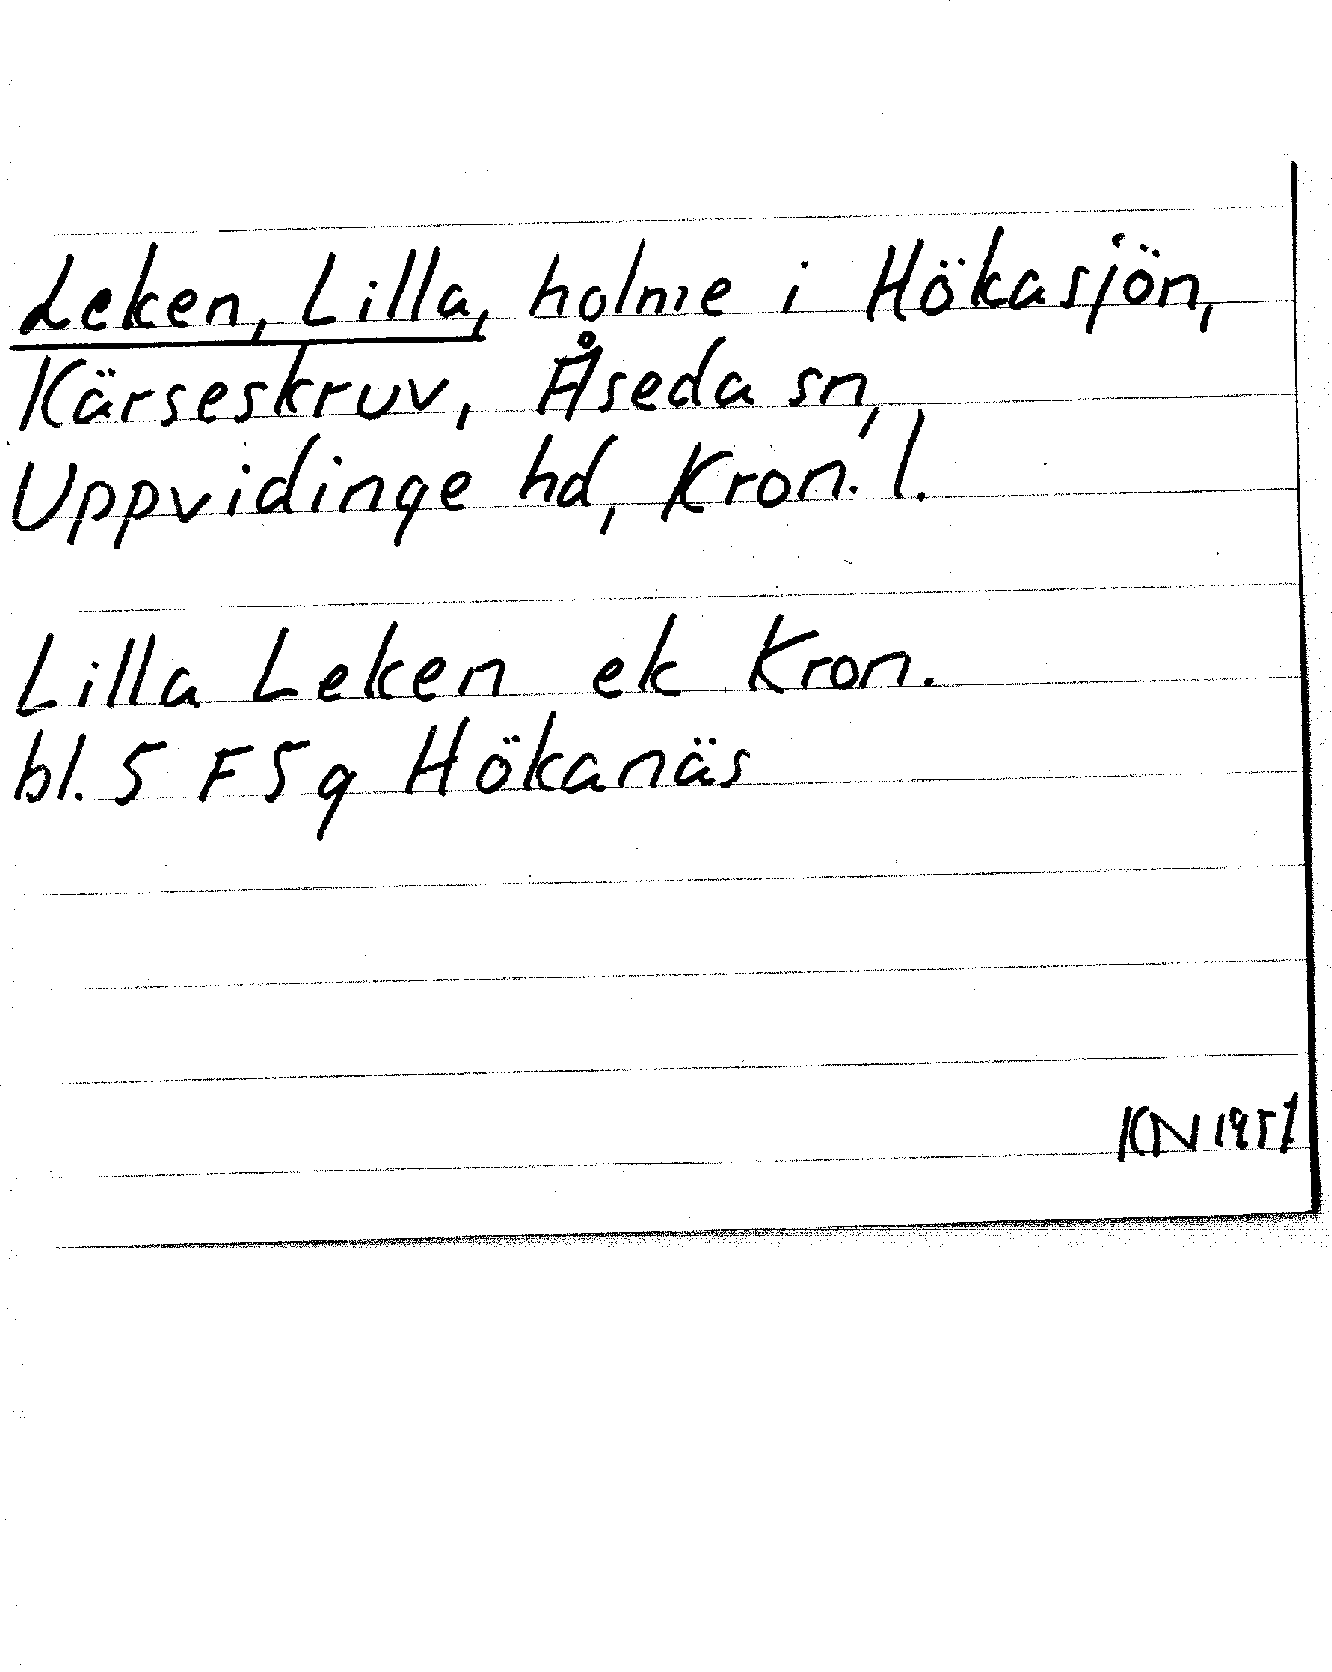 Leken, Lilla, holme i Hökasjön,
Kärseskruv, Åseda sn,
Uppvidinge hd, Kron. l.
Lilla Leken ek Kron.
bl. 5 F 5 g Hökanäs
KN 1951